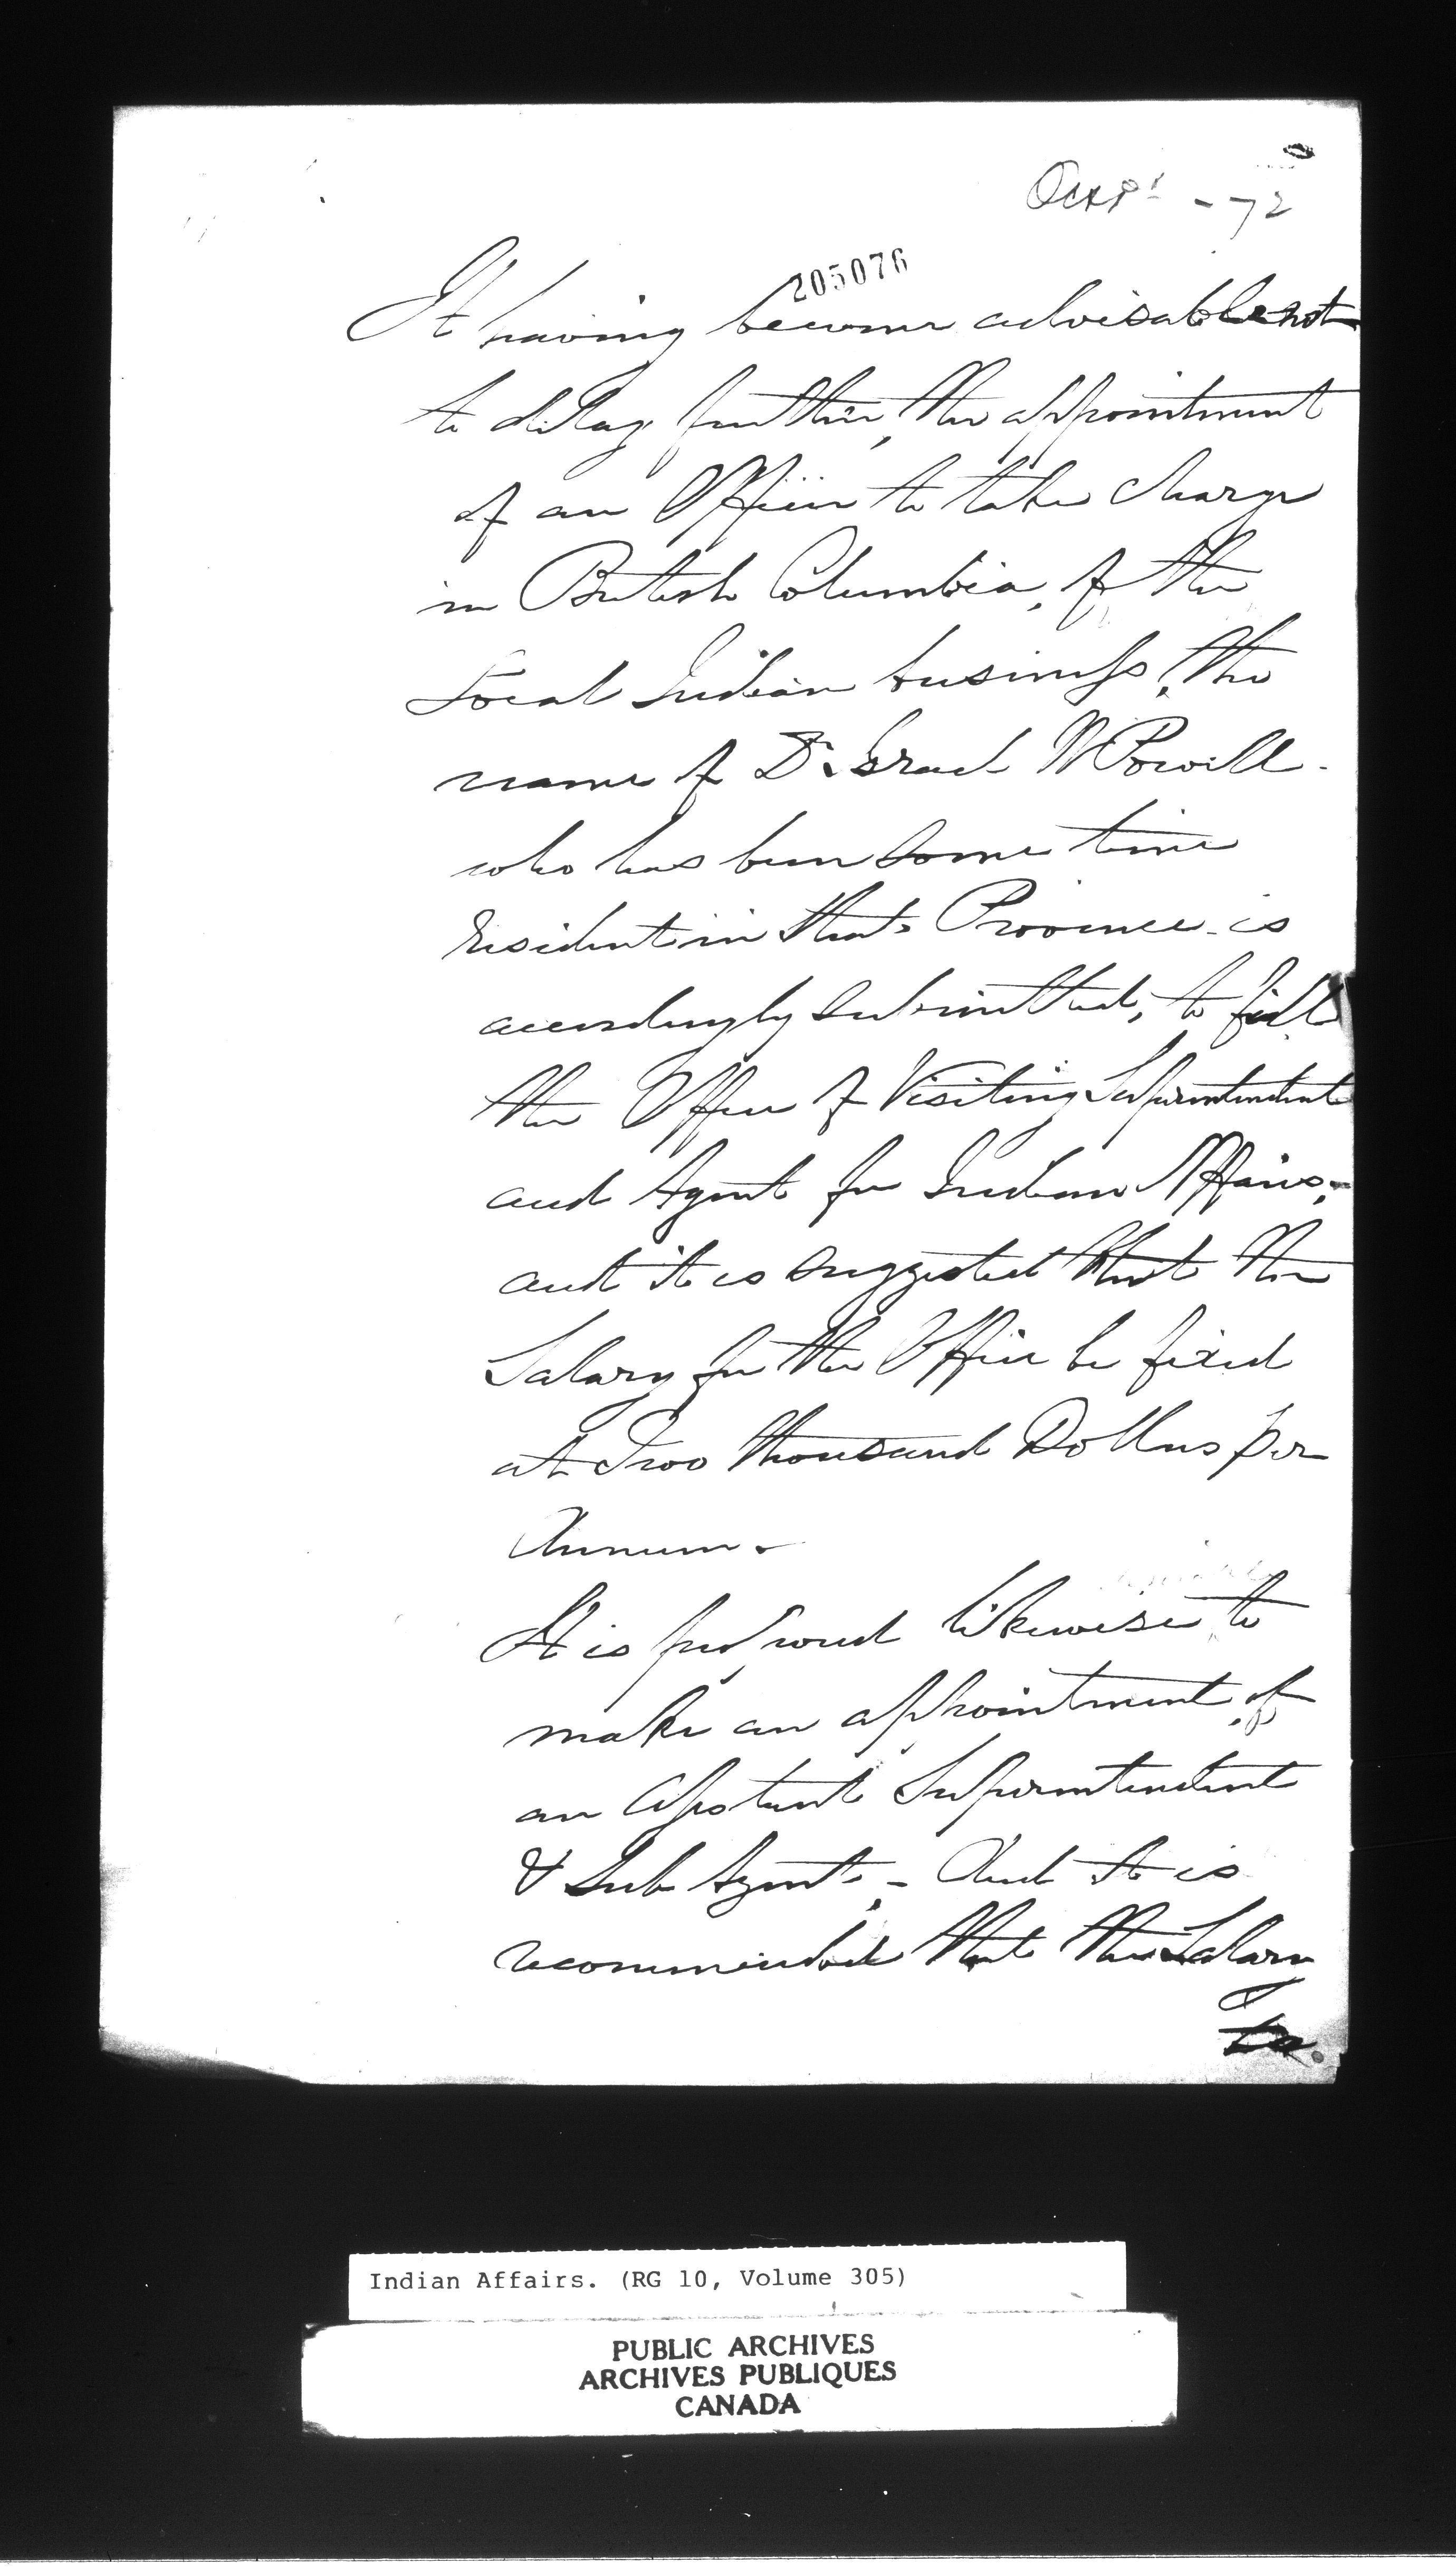 - 72
205076
It having become advisable not
to delay further, the appointment
of an Officer to take charge
in British Columbia, of the
Local Indian business, the
name of Dr. Israel W Powell -
who has been some time
resident in that Province - is
accordingly submitted, to fill
the Office of Visiting Superintendent
and Agent for Indian Affairs,-
and it is suggested that the
Salary for the Office be fixed
at Two thousand Dollars per
Annum -
It is proposed likewise to
make an appointment of
an Assistant Superintendent
& Sub Agent, - And it is
recommended that the Salary
Indian Affairs. (RG 10, Volume 305)
PUBLIC ARCHIVES
ARCHIVES PUBLIQUES
CANADA